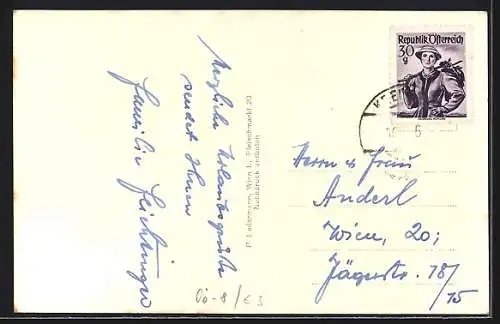 Herzliche Urlaubsgrüße
sendet Ihnen
Familie
P. Ledermann, Wien I., Fleischmarkt 20
Nachdruck verboten
Republik Österreich
30
g
KREM
5
Herrn u Frau
Anderl
Wien, 20;
Jägerstr. 18/
15